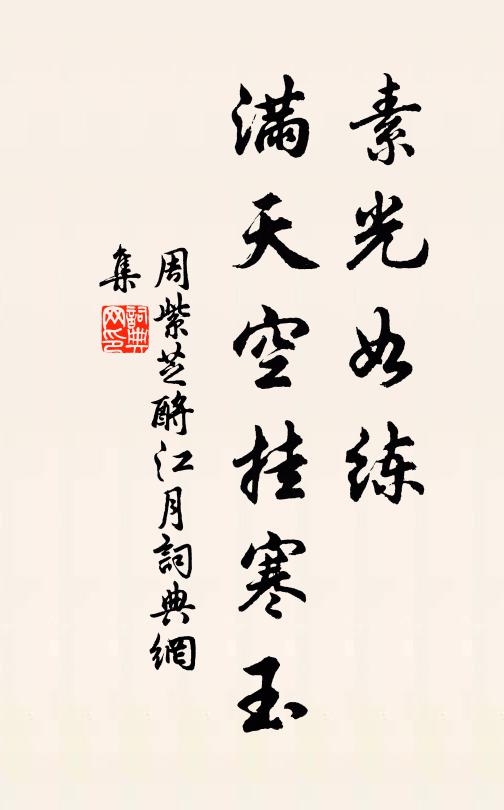 素光如练
满天空挂寒玉
周紫芝酹江月詞典網
集
詞典
网印